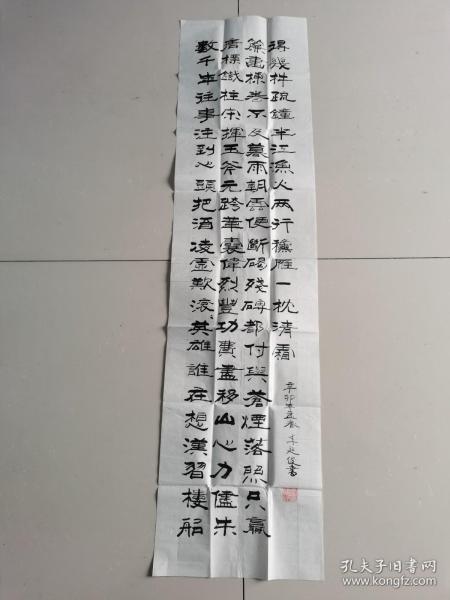 數千年往事注到心頭把酒凌虛歎滚々英雄誰在想漢習樓船
唐標鐵柱宋揮玉斧元跨革囊偉烈豐功費盡移山心力儘朱
簾畫棟卷不及暮雨朝雲便斷碣殘碑都付與蒼煙落照只贏
得幾杵疏鐘半江漁火兩行秋雁一枕清霜
辛卯 書
孔夫子旧书网
www.kongfz.com